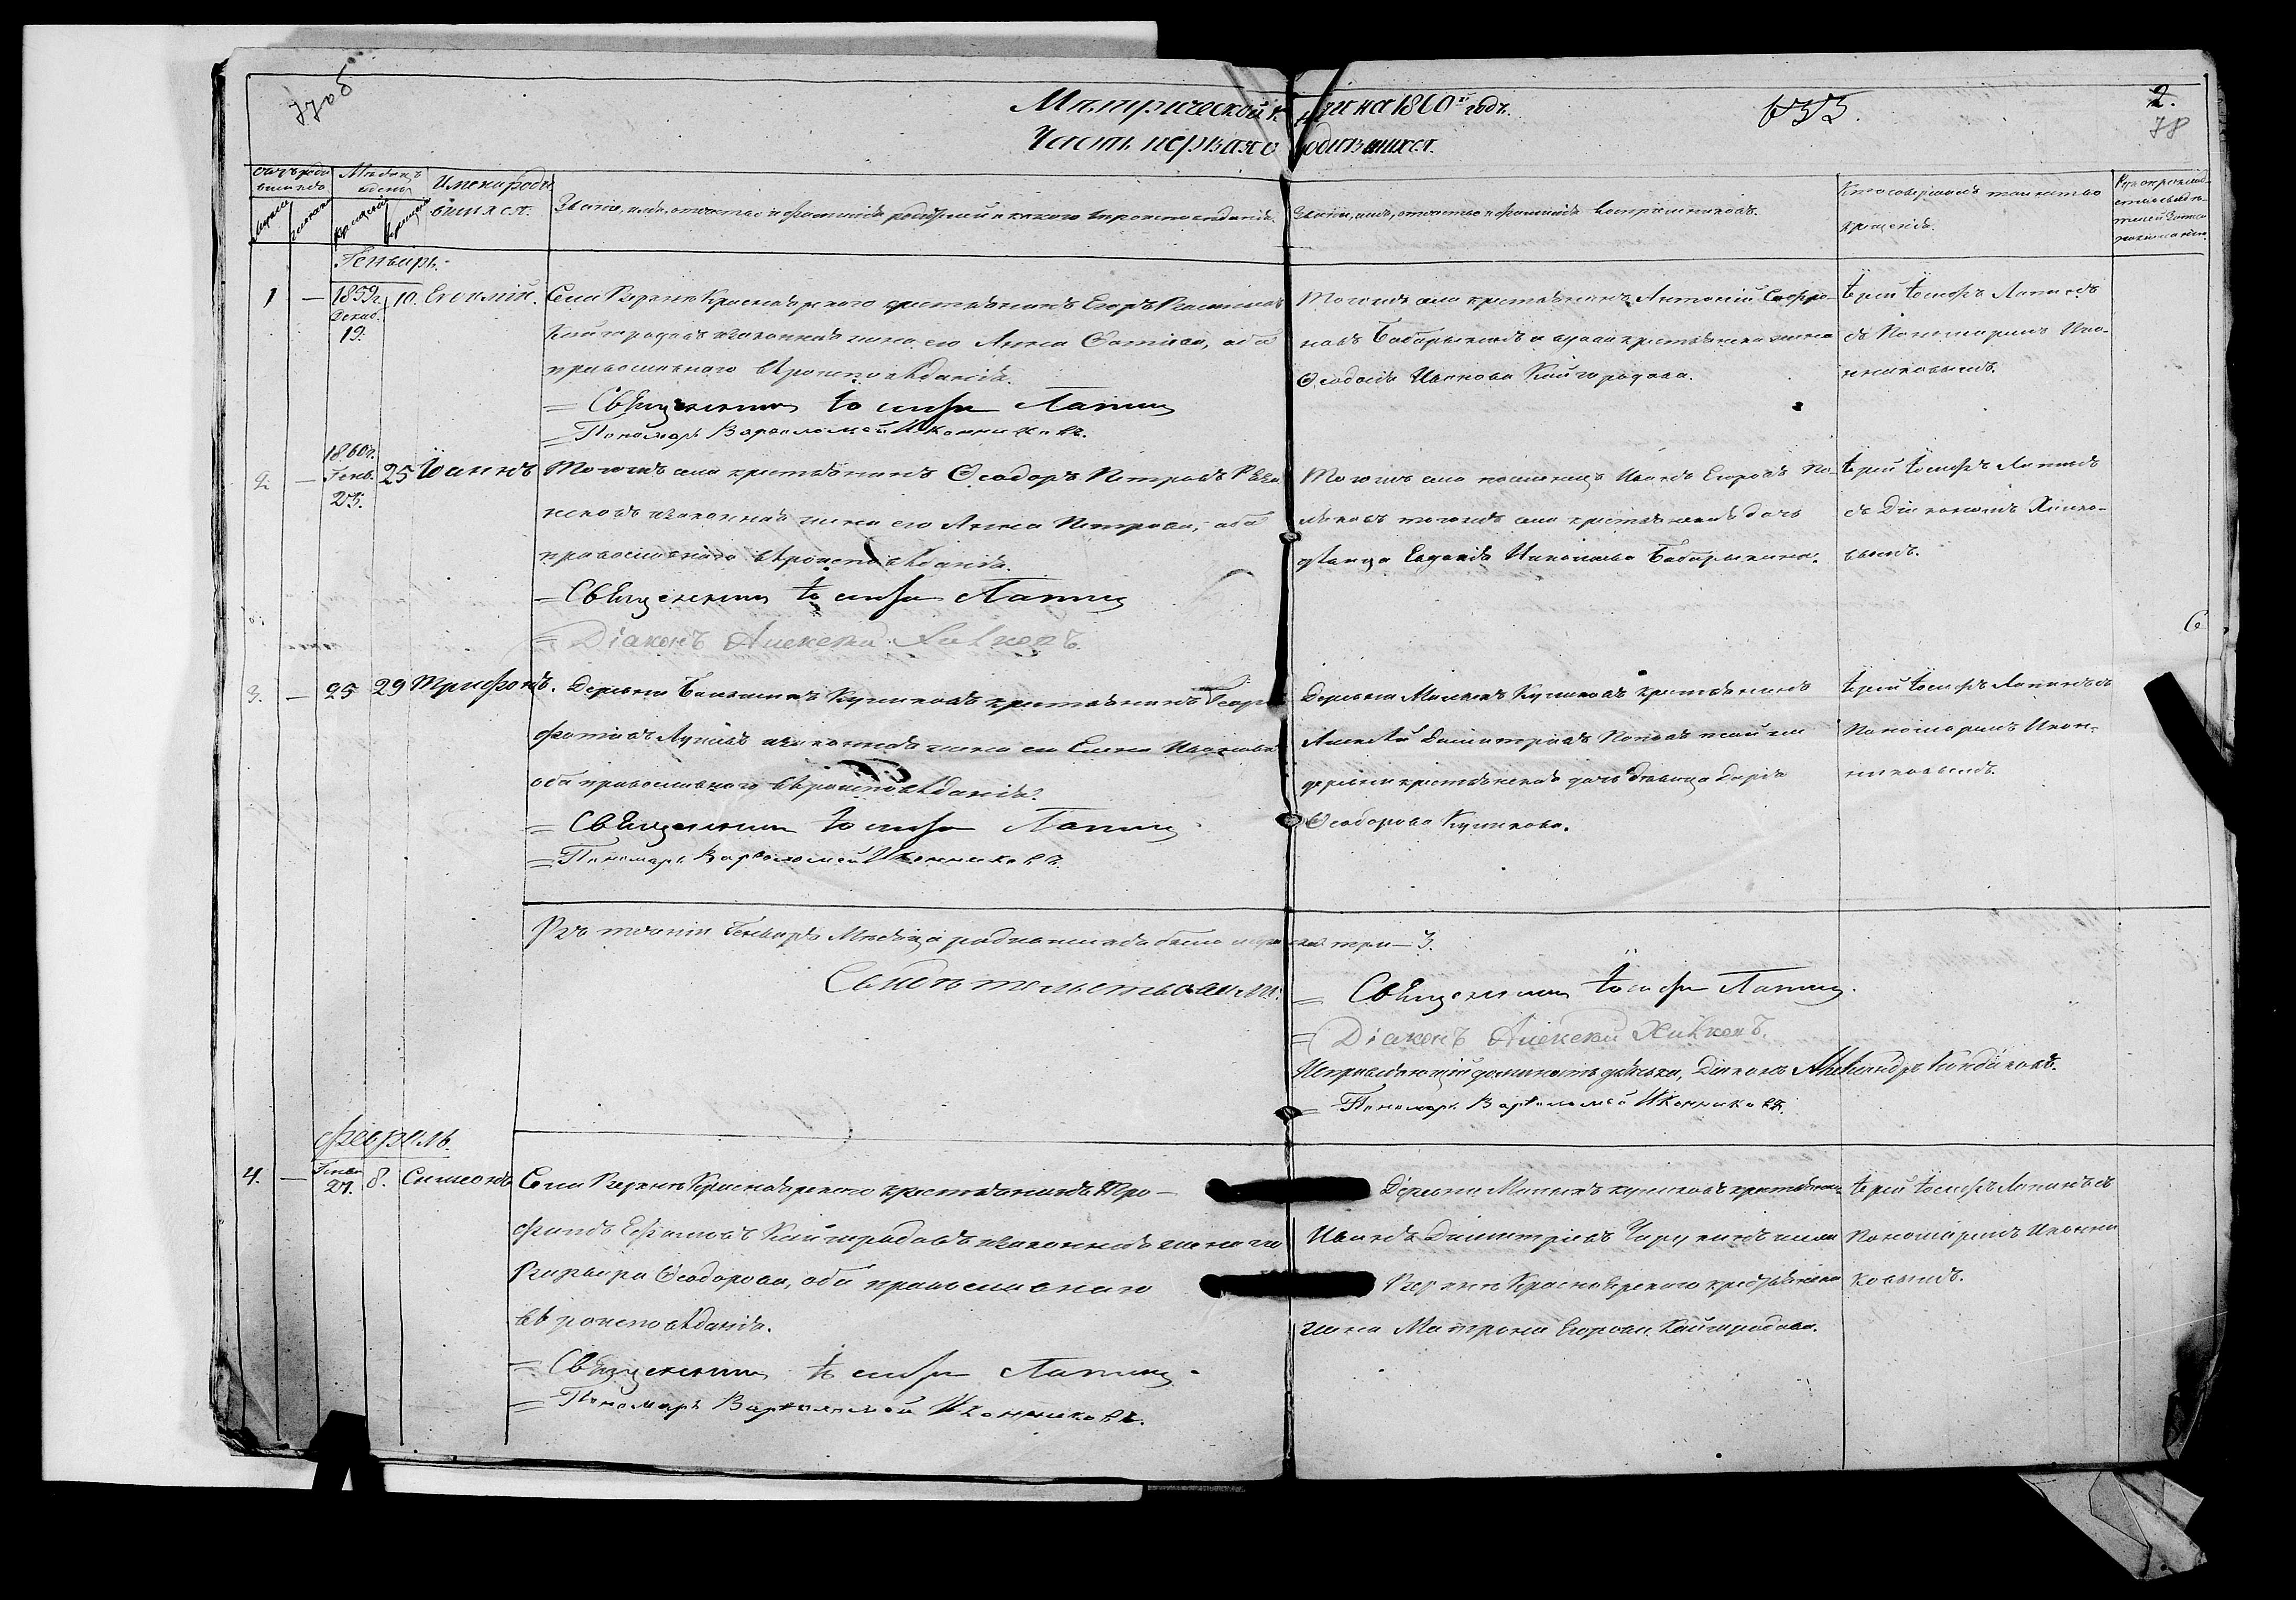 Метрической книги на 1860й годъ.
Часть первая о родившихся.
2.
78
Счетъ родившихся
Мѣсяцъ и день
Имена родившихся.
Званіе, имя, отчество и фамилія родителей и какого вѣроисповѣданія.
Званіе, имя, отчество и фамилія воспріемниковъ.
Кто совершалъ таинство крещенія.
Генварь.
1 — 1859г. Декаб. 19. 10. Евѳимій.
Села Верхне Красноярского крестьянинъ Егоръ Васильевъ
Кайгородовъ и законная жена его Анна Фотіева, оба
православного вѣроисповѣданія.
Священникъ Іосифъ Лапинъ
Пономарь Варѳоломей Иконниковъ.
Тогожъ села крестьянинъ Антоній Софро-
новъ Бабарыкинъ и крестьянская жена
Ѳеодосія Иванова Кайгородова.
Іерей Іосифъ Лапинъ
съ Пономаремъ Ико-
нниковымъ.
2. — 1860г. Генв. 25. 25 Іоаннъ
Тогожъ села крестьянинъ Ѳеодоръ Петровъ
и законная жена его Анна Петрова, оба
православнаго вѣроисповѣданія.
Священникъ Іосифъ Лапинъ
Діаконъ Алексѣй
Тогожъ села поселенецъ Иванъ Егоровъ По-
ляковъ тогожъ села крестьянская дочь
дѣвица Евдокія Николаева Бабарыкина.
Іерей Іосифъ Лапинъ
съ Діакономъ
3. — 25 29 Трифонъ.
Деревни Большихъ Куликовъ крестьянинъ
Фотіевъ и законная жена его Елена Иванова
оба православного вѣроисповѣданія.
Священникъ Іосифъ Лапинъ
Пономарь Варѳоломей Иконниковъ.
Деревни Малыхъ Куликовъ крестьянинъ
Алексѣй Димитріевъ Поповъ той же
деревни крестьянская дочь дѣвица Дарія
Ѳеодорова Куликова.
Іерей Іосифъ Лапинъ съ
Пономаремъ Икон-
никовымъ.
Въ теченіи Генваря Мѣсяца родившихся было мужеска три — 3.
Свидѣтельствовали:
Священникъ Іосифъ Лапинъ.
Діаконъ Алексѣй
Исправляющій должность дьячка, Діаконъ Александръ Кондаковъ.
Пономарь Варѳоломей Иконниковъ.
Февраль.
4. — Генв. 27. 8. Симеонъ
Села Верхне Красноярского крестьянинъ Тро-
фимъ Ефимовъ Кайгородовъ и законная жена его
Варвара Ѳеодорова, оба православнаго
вѣроисповѣданія.
Священникъ Іосифъ Лапинъ.
Пономарь Варѳоломей Иконниковъ.
Деревни Малыхъ куликовъ крестьянинъ
Иванъ Димитріевъ села
Верхне Красноярского крестьянская
жена Матрона Егорова Кайгородова.
Іерей Іосифъ Лапинъ съ
Пономаремъ Иконни
ковымъ.